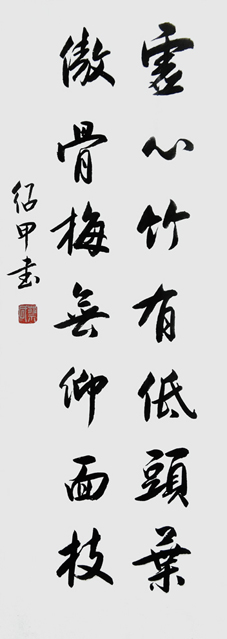 虛心竹有低頭葉
傲骨梅無仰面枝
紹甲书